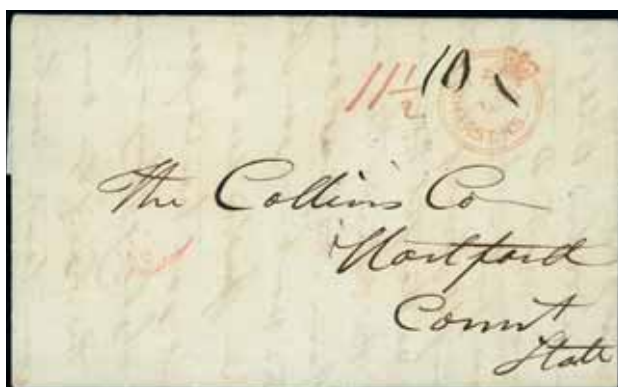 11 1/2 10
The Collins Co
Hartford
Connt
State